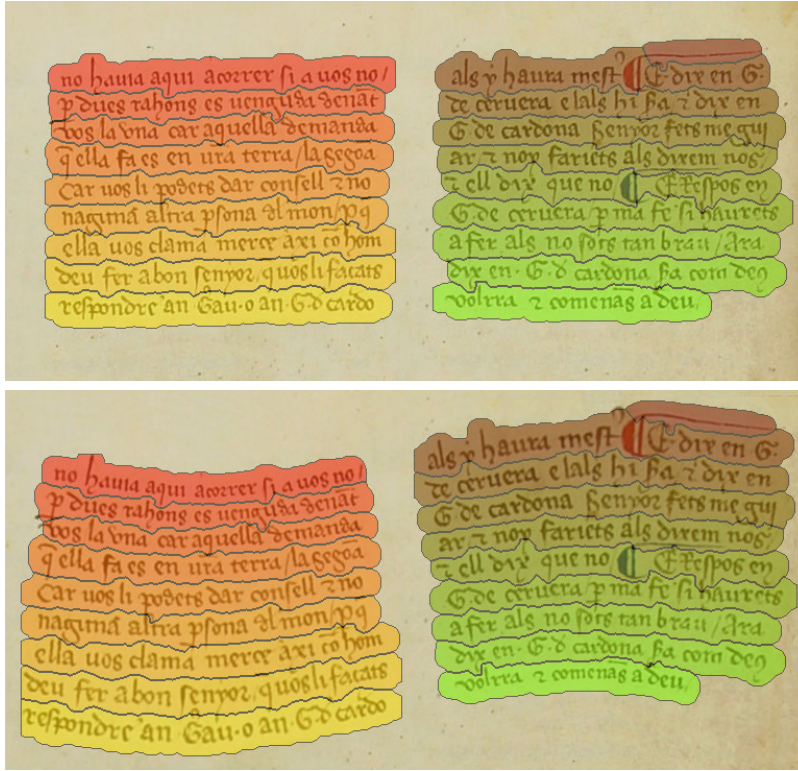 no hauia aqui acorrer si a uos no /
p dues rahons es uenguda denãt
vos la vna car aquella demanda
q̃ ella fa es en ura terra / la segoã
Car uos li podets dar consell ⁊ no
naguna altra psona dl mon / p q
ella uos clama merce axi cõ hom
deu fer a bon senyor, q uos li facats
respondre an Gau. o an. G. d cardo
als y haura mest ¶ E dix en G.
de ceruera e lals hi ha ⁊ dix en
G de cardona Senyor fets me gui
ar ⁊ non fariets als dixem nos.
⁊ ell dix que no ¶ E Respos en
G. de ceruera / p ma fe si haurets
a fer als no sots tan brau / Ara
dix en. G. d cardona ha com deq
volrra ⁊ comenãs a deu,
no hauia aqui acorrer si a uos no /
p dues rahons es uenguda denãt
vos la vna car aquella demanda
q̃ ella fa es en ura terra / la segoã
Car uos li podets dar consell ⁊ no
naguna altra psona dl mon / p q
ella uos clama merce axi cõ hom
deu fer a bon senyor, q uos li facats
respondre an Gau. o an. G. d cardo
als y haura mest ¶ E dix en G.
de ceruera e lals hi ha ⁊ dix en
G de cardona Senyor fets me gui
ar ⁊ non fariets als dixem nos.
⁊ ell dix que no ¶ E Respos en
G. de ceruera / p ma fe si haurets
a fer als no sots tan brau / Ara
dix en. G. d cardona ha com deq
volrra ⁊ comenãs a deu,